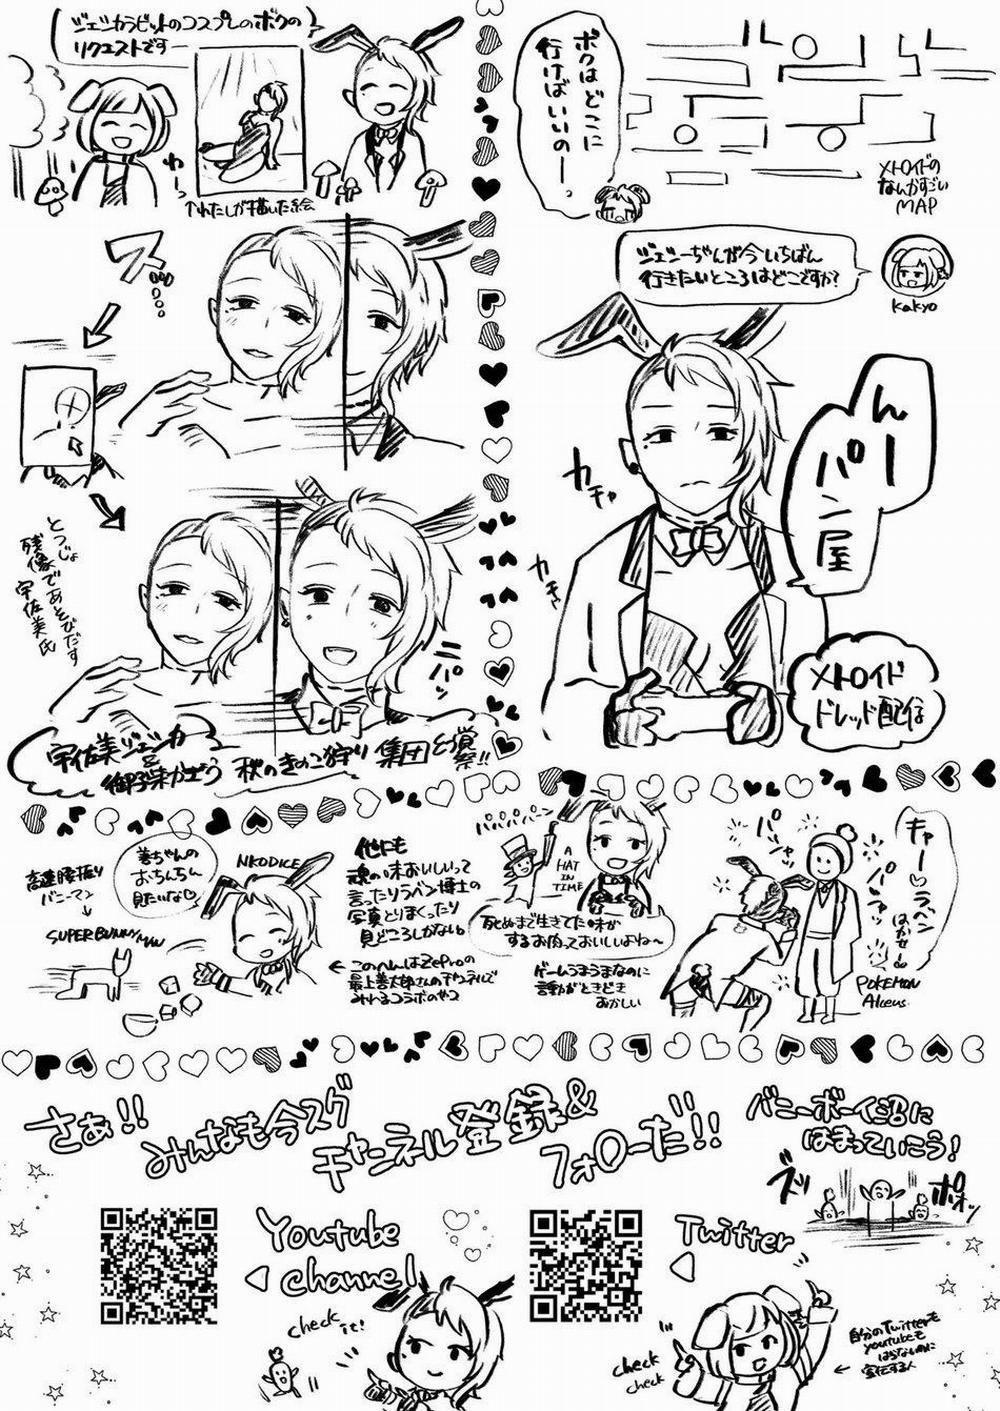 ジェシカラビットのコスプレのボクの
リクエストですー
わーっ
↑わたしが描いた絵
ボクはどこに
行けばいいのーっ
メトロイドの
なんかすごい
MAP
ジェシーちゃんが今いちばん
行きたいところはどこですか?
kakyo
んー
パン屋
カチャ
カチャ
メトロイド
ドレッド配信
ズ...
とつじょ
残像であそびだす
宇佐美氏
ニパッ
宇佐美ジェシカ
&
秋のきのこ狩り集団幻覚
祭!!
高速腰振り
バニーマン
↓
SUPER BUNNY MAN
善ちゃんの
おちんちん
見たいな
NKODICE
他にも
魂の味おいしいって
言ったりラベン博士の
写真とりまくったり
見どころしかない。
← このへんはZeproの
最上善太郎さんのチャンネルで
みれるコラボのやつ
パパパパーン
A
HAT
IN
TIME
死ぬまで生きてた味が
するお肉っておいしいよね〜
ゲームうまうまなのに
言動がときどき
おかしい
パシャッ
パシャッ
キャー♡ラベン
はかせー
POKEMON
Alceus
さぁ!!
みんなも今スグ
チャンネル登録&
フォローだ!!
バニーボーイ沼に
はまっていこう!
ズッ
ポォッ
Youtube
channel
check it!
Twitter
check
check
自分のTwitterも
youtubeも
はらないのに
← 宣伝する人